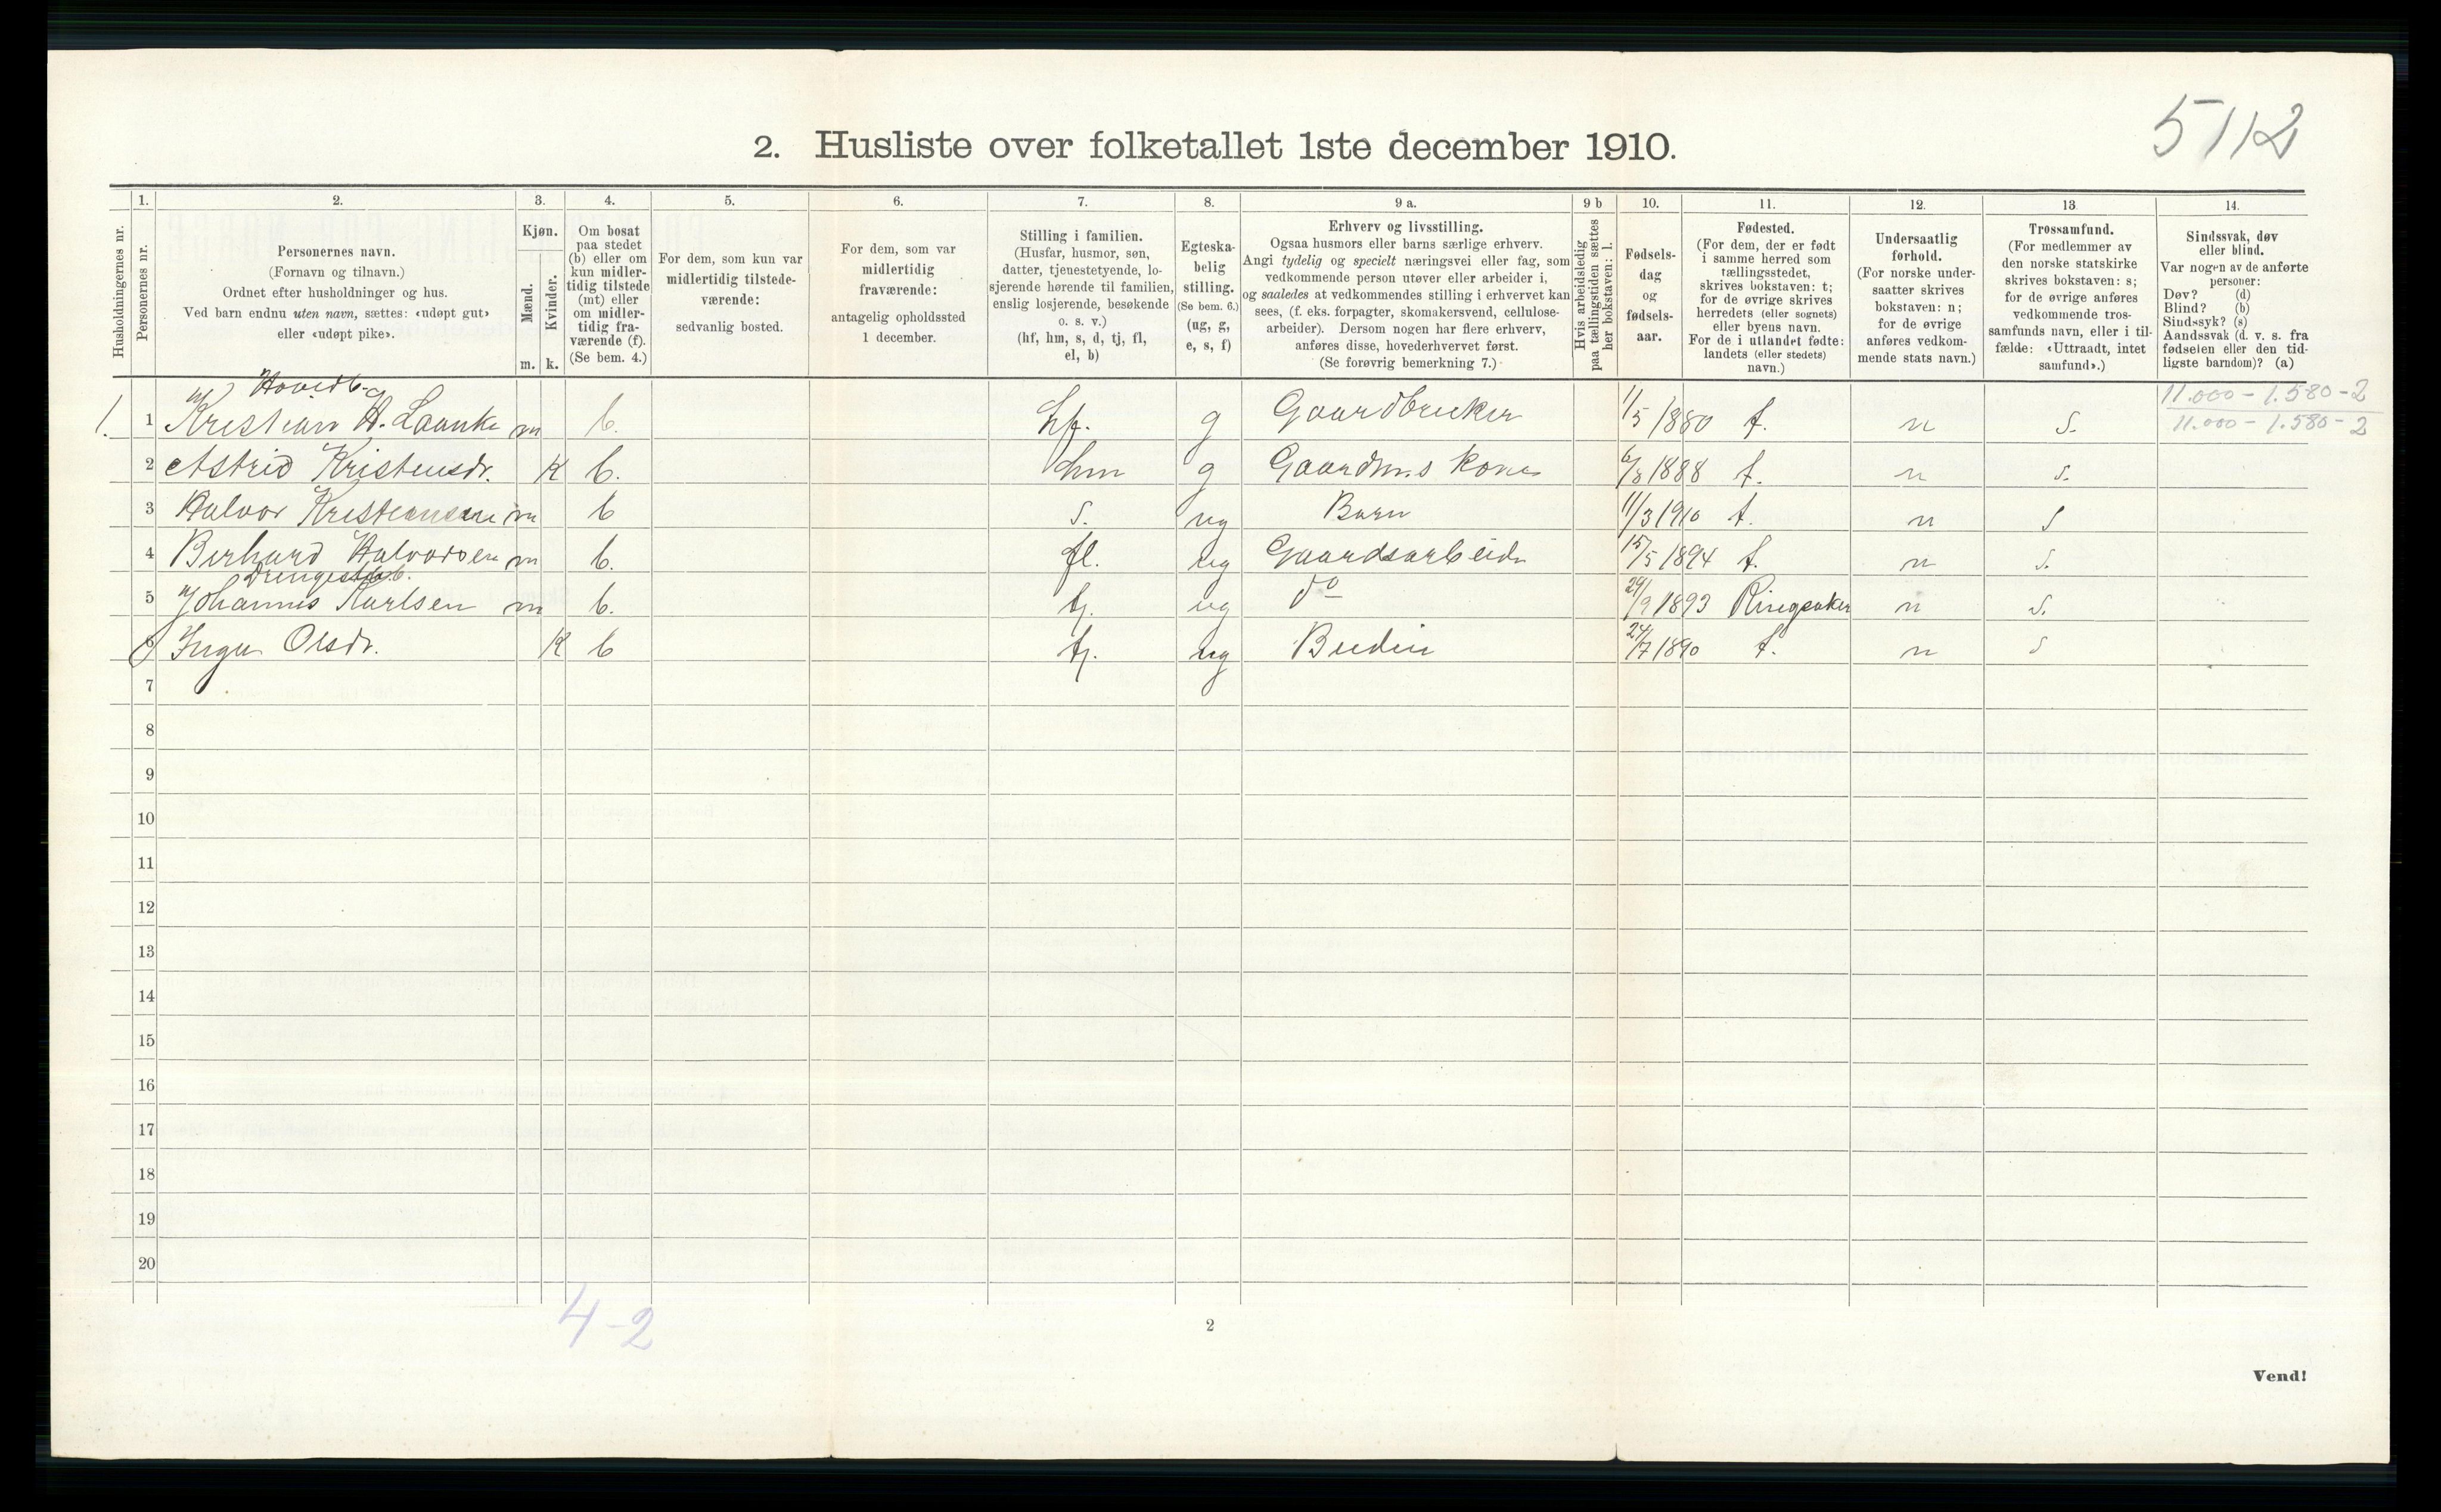 5112
2. Husliste over folketallet 1ste december 1910.
1. 2. 3. 4. 5. 6. 7. 8. 9 a. 9 b 10. 11. 12. 13 14.
Husholdningernes nr.
Personernes nr.
Personernes navn.
(Fornavn og tilnavn.)
Ordnet efter husholdninger og hus.
Ved barn endnu uten navn, sættes: «udøpt gut»
eller «udøpt pike».
Kjøn.
Mænd.
Kvinder.
m. k.
Om bosat
paa stedet
(b) eller om
kun midler-
tidig tilstede
(mt) eller
om midler-
tidig fra-
værende (f).
(Se bem. 4.)
For dem, som kun var
midlertidig tilstede-
værende:
sedvanlig bosted.
For dem, som var
midlertidig
fraværende:
antagelig opholdssted
1 december.
Stilling i familien.
(Husfar, husmor, søn,
datter, tjenestetyende, lo-
sjerende hørende til familien,
enslig losjerende, besøkende
o. s. v.)
(hf, hm, s, d, tj, fl,
el, b)
Egteska-
belig
stilling.
(Se bem. 6.)
(ug, g,
e, s, f)
Erhverv og livsstilling.
Ogsaa husmors eller barns særlige erhverv.
Angi tydelig og specielt næringsvei eller fag, som
vedkommende person utøver eller arbeider i,
og saaledes at vedkommendes stilling i erhvervet kan
sees, (f. eks. forpagter, skomakersvend, cellulose-
arbeider). Dersom nogen har flere erhverv,
anføres disse, hovederhvervet først.
(Se forøvrig bemerkning 7.)
Hvis arbeidsledig
paa tællingstiden sættes
her bokstaven: l.
Fødsels-
dag
og
fødsels-
aar.
Fødested.
(For dem, der er født
i samme herred som
tællingsstedet,
skrives bokstaven: t;
for de øvrige skrives
herredets (eller sognets)
eller byens navn.
For de i utlandet fødte:
landets (eller stedets)
navn.)
Undersaatlig
forhold.
(For norske under-
saatter skrives
bokstaven: n;
for de øvrige
anføres vedkom-
mende stats navn.)
Trossamfund.
(For medlemmer av
den norske statskirke
skrives bokstaven: s;
for de øvrige anføres
vedkommende tros-
samfunds navn, eller i til-
fælde: «Uttraadt, intet
samfund».)
Sindssvak, døv
eller blind.
Var nogen av de anførte
personer:
Døv? (d)
Blind? (b)
Sindssyk? (s)
Aandssvak (d. v. s. fra
fødselen eller den tid-
ligste barndom)? (a)
Hovedb.
11.000 - 1.580 - 2
11.000 - 1.580 - 2
1. 1 Kristian H. Laanke m b. hf. g Gaardbruker 11/5 1880 t. n s.
2 Astrid Kristensdr. K b. hm g Gaardm.s kone 6/8 1888 t. n s.
3 Halvor Kristiansen m b s. ug Barn 11/3 1910 t. n s
4 Berhard Halvorsen m b. fl. ug Gaardsarbeide 15/5 1894 t. n s.
5 Johannes Karlsen m b. tj. ug do 29/9 1893 Ringsaker n s.
6 Inga Olsdr. K b tj. ug Budeie 24/7 1890 t. n s
7
8
9
10
11
12
13
14
15
16
17
18
19
20
4-2
2
Vend!